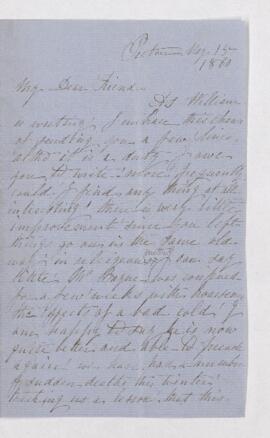 Pictou
1860
My Dear Friend
As William
is writing I embrace this chance
of sending you a few lines
altho it is a duty I owe
you to write more frequently
could I find any thing at all
interesting there is very little
improvement since you left
things go on in the same old
way in religious matters I can say
little Mr was confined
for a few weeks with hoarseness
the effects of a bad cold I
am happy to say he is now
quite better and able to preach
again we have had a number
of sudden deaths this winter
teaching us a lesson that this